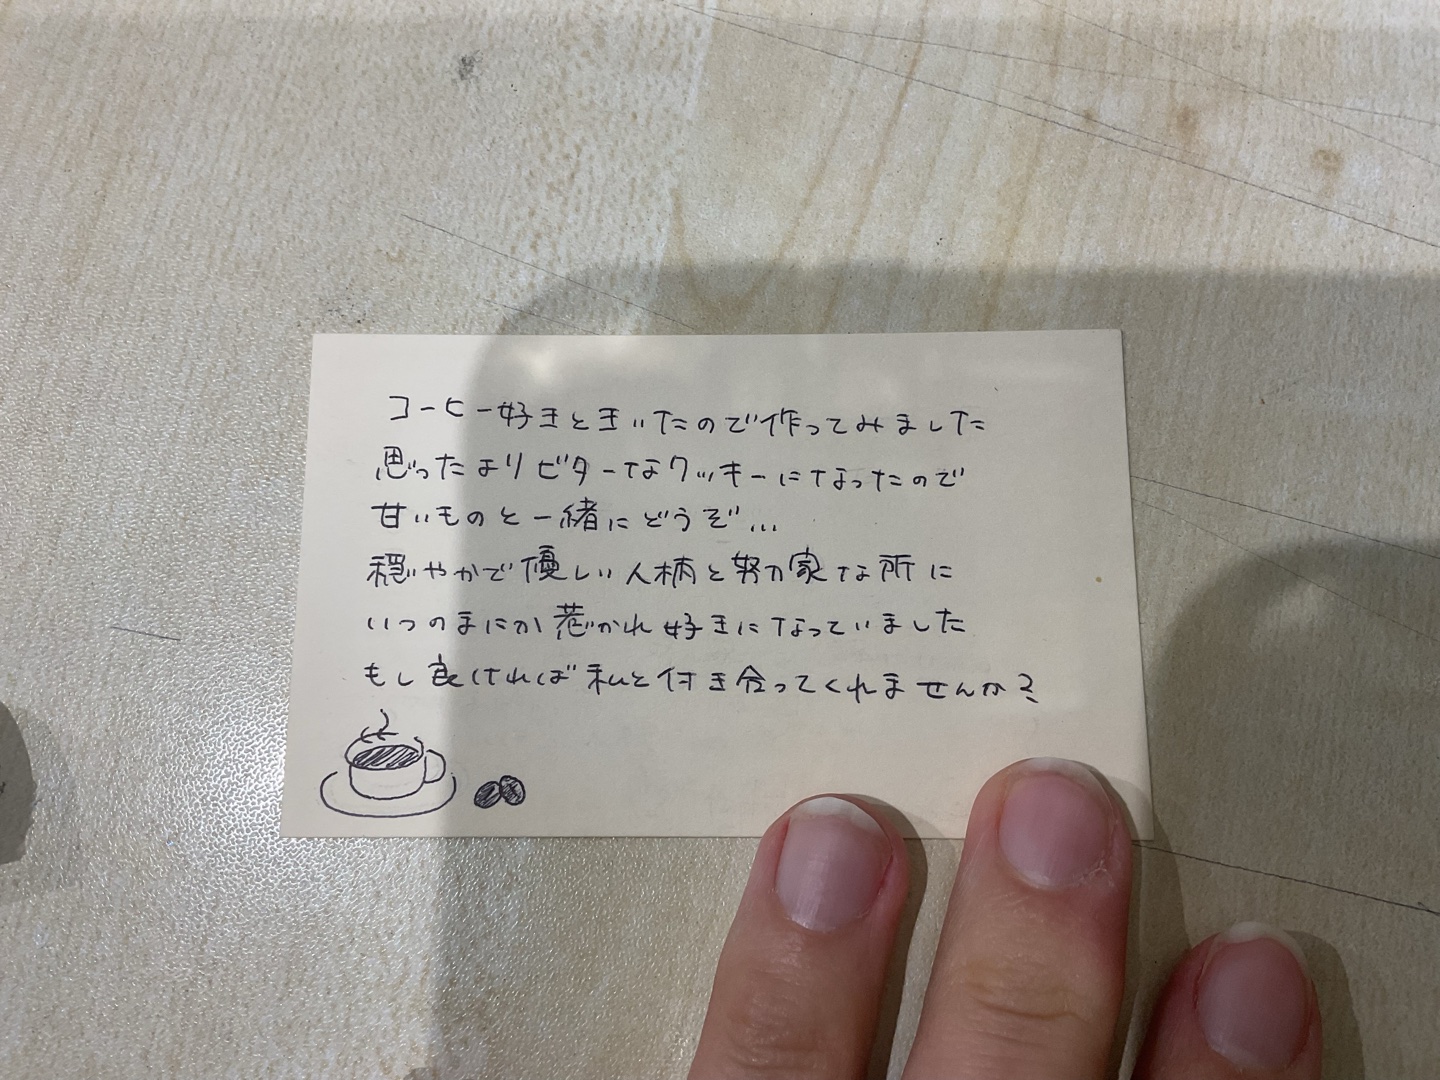 コーヒー好きときいたので作ってみました
思ったよりビターなクッキーになったので
甘いものと一緒にどうぞ…
穏やかで優しい人柄と努力家な所に
いつのまにか惹かれ好きになっていました
もし良ければ私と付き合ってくれませんか?